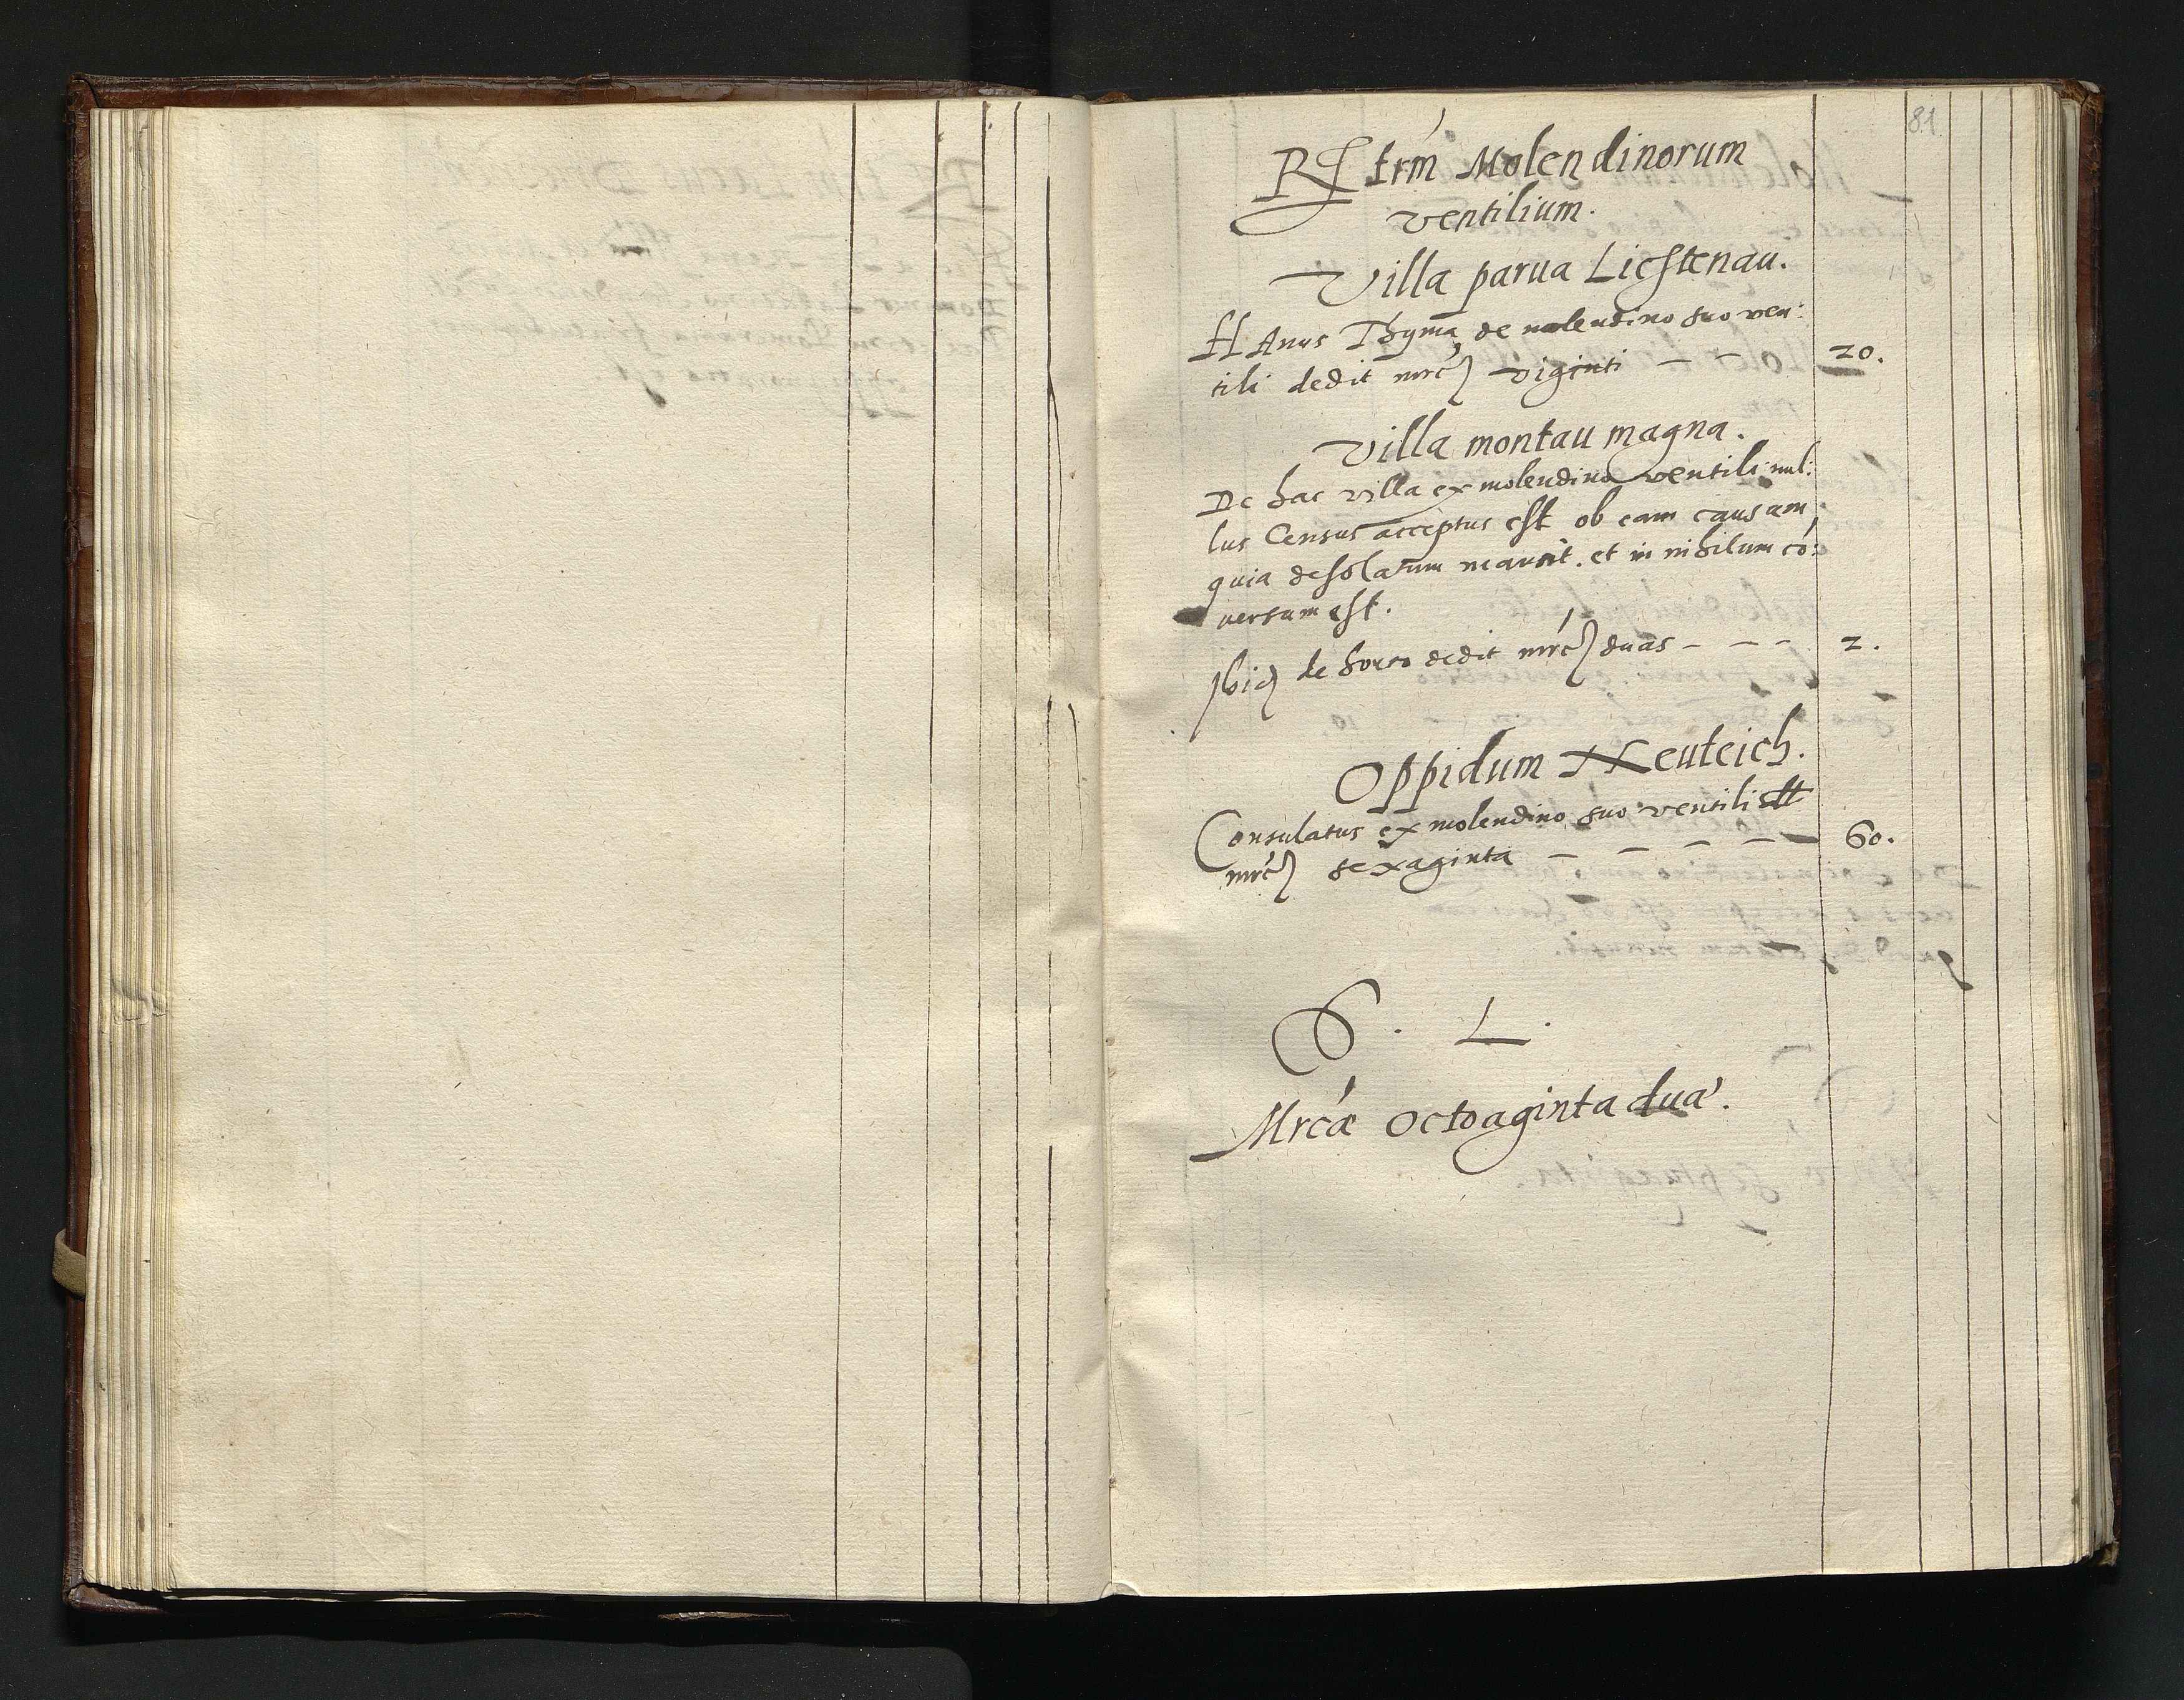 81.
Rgtrm Molendinorum
ventilium.
Villa parua Lichtenau.
HAnus Thyma de molendino suo ven:
tili dedit mrc viginti — — 20.
Villa montau magna.
De hac villa ex molendino ventili nul:
lus Census acceptus est ob eam causam,
quia desolatum mansit. et in nihilum cō:
uersum est.
Ibid de horto dedit mrc duas — — — 2.
Oppidum Neuteich.
Consulatus ex molendino suo ventili
mrc sexaginta — — — — — 60.
L.
Mrcæ Octoaginta duæ.